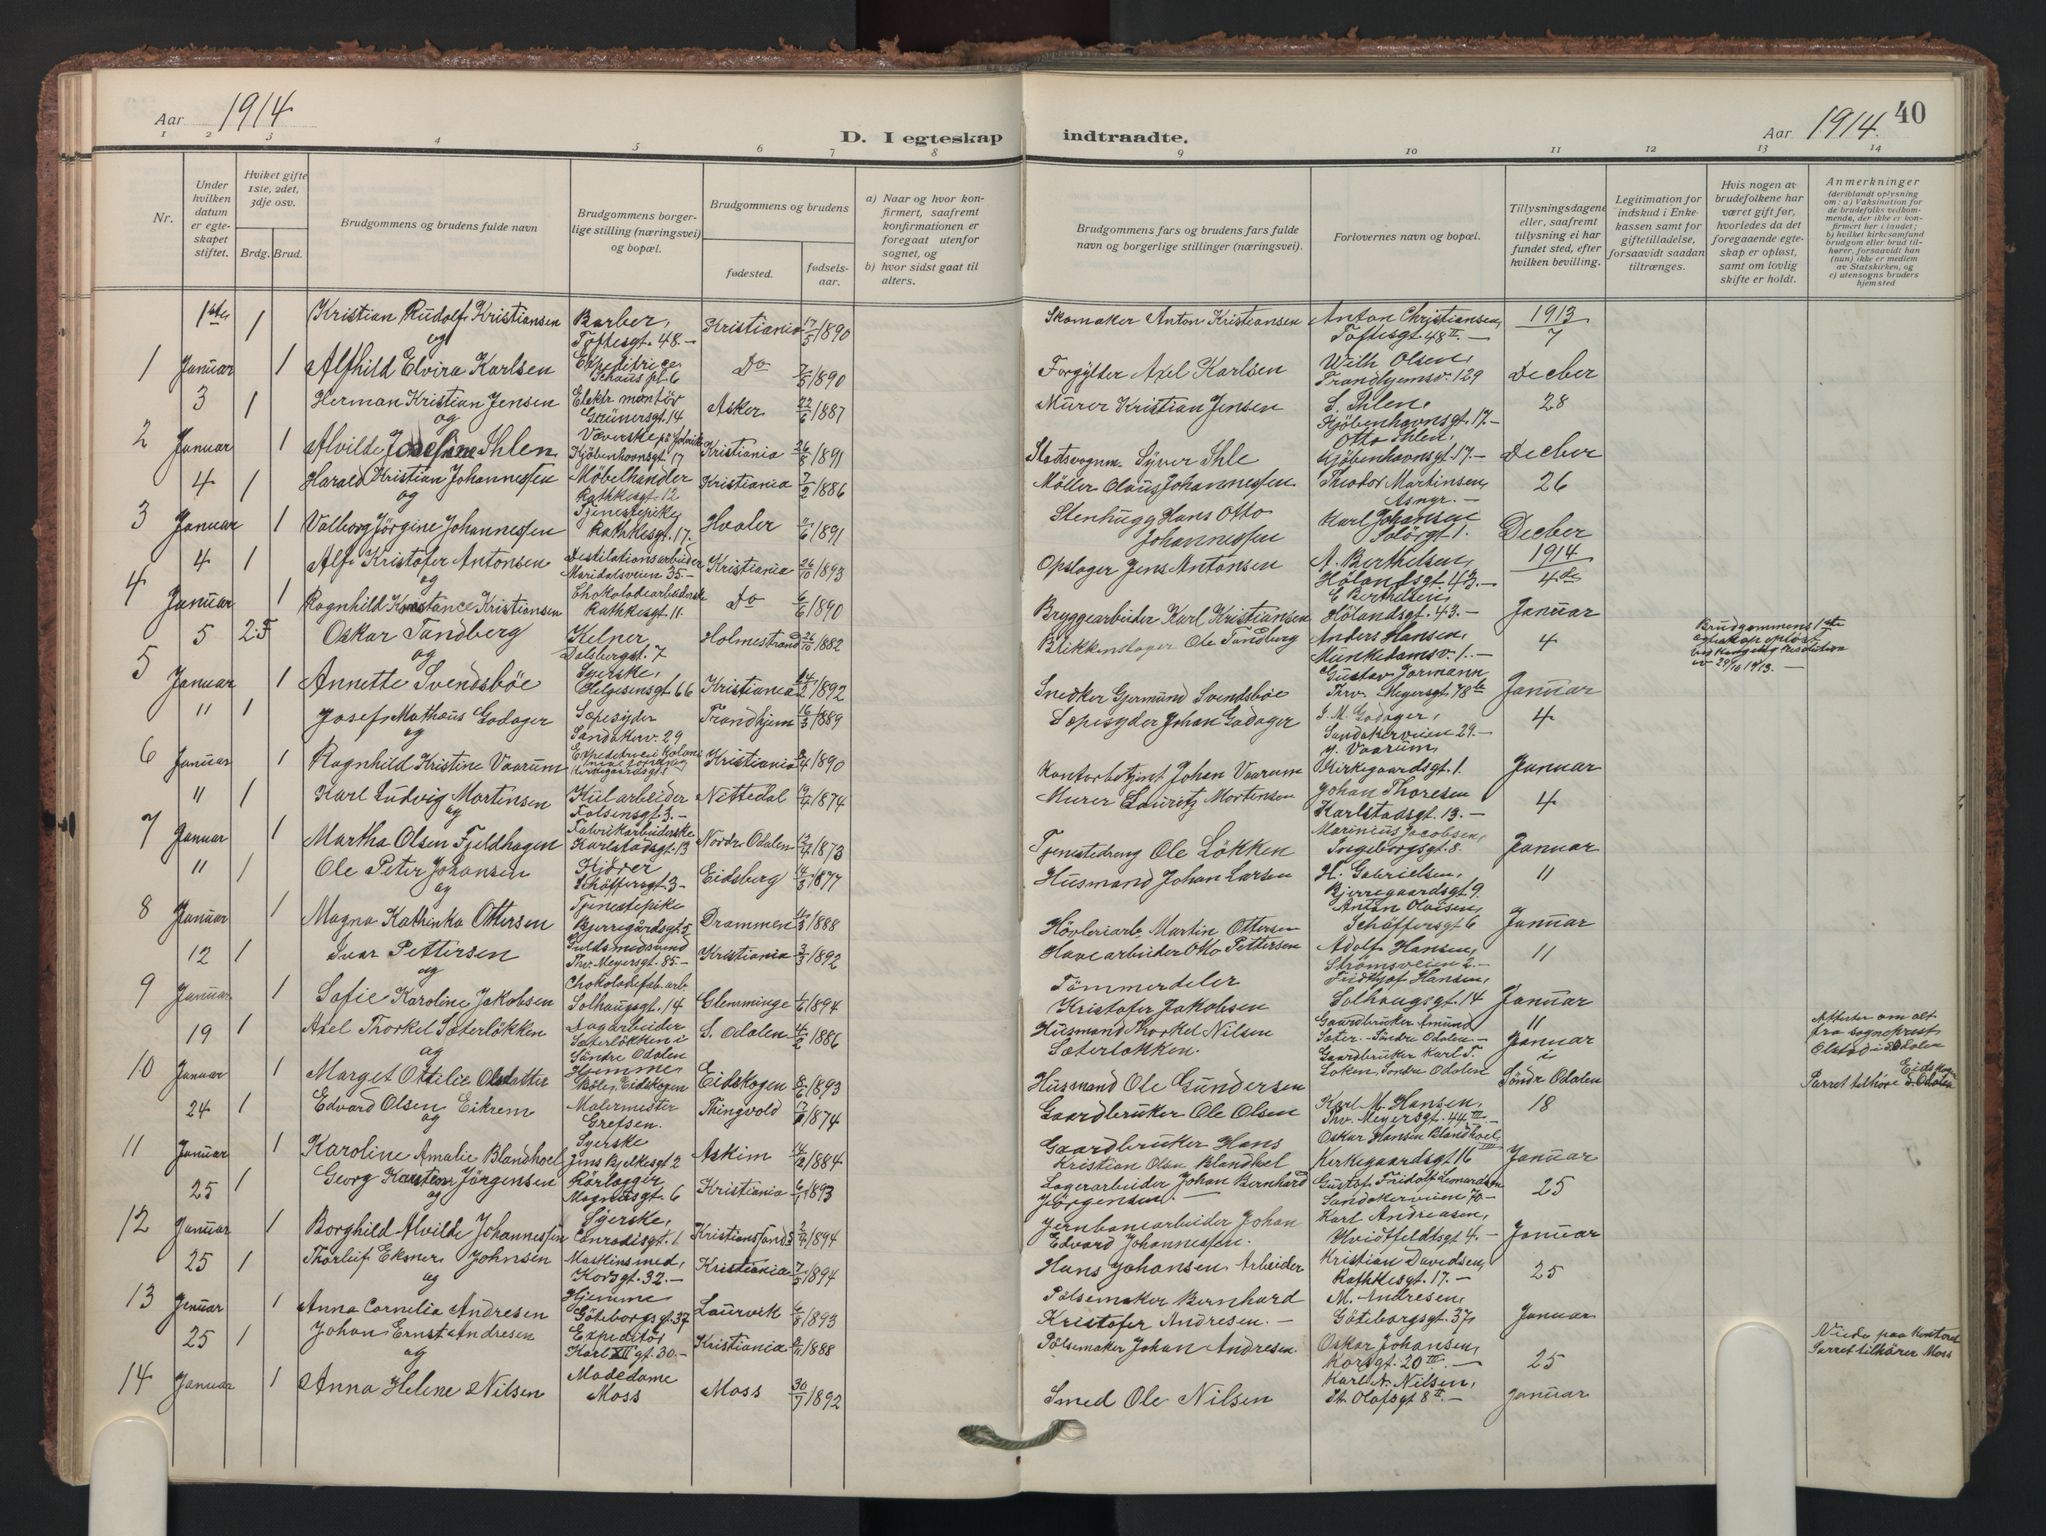 Aar 1914
D. I egteskap indtraadte.
Aar 1914.
40
1 2 3 4 5 6 7 8 9 10 11 12 13 14
Nr.
Under hvilken datum er egteskapet stiftet.
Hvilket gifte 1ste, 2det, 3dje osv.
Brdg. Brud.
Brudgommens og brudens fulde navn
Brudgommens borgerlige stilling (næringsvei) og bopæl.
Brudgommens og brudens
fødested.
fødselsaar.
a) Naar og hvor konfirmert, saafremt konfirmationen er foregaat utenfor sognet, og
b) hvor sidst gaat til alters.
Brudgommens fars og brudens fars fulde navn og borgerlige stillinger (næringsvei).
Forlovernes navn og bopæl.
Tillysningsdagene eller, saafremt tillysning ei har fundet sted, efter hvilken bevilling.
Legitimation for indskud i Enkekassen samt for giftetilladelse, forsaavidt saadan tiltrænges.
Hvis nogen av brudefolkene har været gift før, hvorledes da det foregaaende egteskap er opløst, samt om lovlig skifte er holdt.
Anmerkninger
(deriblandt oplysning om: a) Vaksination for de brudefolks vedkommende, der ikke er konfirmert her i landet; b) hvilket kirkesamfund brudgom eller brud tilhører, forsaavidt han (hun) ikke er medlem av Statskirken, og c) utensogns bruders hjemsted
1ste 1 Kristian Rudolf Kristiansen Barber, Toftesgt. 48.- Kristiania 17/5 1890 Skomaker Anton Kristiansen Anton Christiansen, Toftesgt 48 II.- 1913 7
og
1 Januar 1 Alfhild Elvira Karlsen Expeditrice Schaus pl. 6 Do 7/5 1890 Forgylder Axel Karlsen Wilh. Olsen, Trondhjemsv. 129 Decber
3 1 Herman Kristian Jensen Elektr. montør Grünersgt. 14 Asker 22/6 1887 Murer Kristian Jensen S. Ihlen, Kjøbenhavnsgt. 17.- 28
og
2 Januar 1 Alvilde Josefine Ihlen Væverske Kjøbenhavnsgt. 17 Kristiania 26/8 1891 Syver Ihle Otto Ihlen, Kjøbenhavnsgt. 17.- Decber
4 1 Harald Kristian Johannessen Møbelhandler Rathkesgt. 12 Kristiania 7/2 1886 Møller Olaus Johannessen Theodor Martinsen, Asnyr.- 26
og
3 Januar 1 Valborg Jørgine Johannessen Tjenestepike, Rathkesgt. 17. Hvaler 11/6 1891 Stenhugg. Hans Otto Johannessen Karl Johansen Solørgt 1. Decber
4 1 Alf Kristofer Antonsen Destilationsarbeider Maridalsveien 35- Kristiania 26/10 1893 Opslager Jens Antonsen A. Berthelsen, Hølandsgt. 43.- 1914 4de
og
4 Januar 1 Ragnhild Konstance Kristiansen Chokoladearbeiderske Rathkesgt. 11. Do 6/6 1890 Bryggearbeider Karl Kristiansen E. Berthelsen, Hølandsgt. 43.- Januar
5 2.F Oskar Tandberg Kelner, Dalsbergst. 7 Holmestrand 26/10 1882 Blikkenslager Ole Tandberg Anders Hansen, Munkedamsv. 1.- 4 Brudgommens 1ste egteskap opløst ved kongelig resolution av 29/10 1913.-
og
5 Januar 1 Annette Svendsbøe Syerske, Helgesensgt. 66 Kristiania 1892 Snedker Gjermund Svendsbøe Gustav Jormann Thv. Meyersgt 78b Januar
" 1 Josef Mathæus Godager Sæpesyder Sandakerv. 29 Trondhjem 16/3 1889 Sæpesyder Johan Godager J. M. Godager, Sandakerveien 29.- 4
og
6 Januar 1 Ragnhild Kristine Vaarum Kirkegaardsgt. 1 Kristiania 8/4 1890 Kontorbetjent Johan Vaarum J. Vaarum, Kirkegaardsgt. 1. Januar
" 1 Karl Ludvig Martinsen Kularbeider Falsensgt. 3.- Nittedal 1874 Murer Lauritz Mortensen Johan Thoresen Karlstadsgt. 13.- 4
og
7 Januar 1 Martha Olsen Fjeldhagen Fabrikarbeiderske Karlstadsgt. 13 Nordre Odalen 1873 Tjenestedreng Ole Løkken Marinius Jacobsen, Ingeborgsgt. 8. Januar
" 1 Ole Peter Johansen Kjører Schøffersgt. 3- Eidsberg 14/3 1877 Husmand Johan Larsen H. Gabrielsen, Bjerregaardsgt. 9 11
og
8 Januar 1 Magna Kathinka Ottersen Tjenestepike Bjerregårdsgt. 5 Drammen 1888 Høvleriarb. Martin Ottersen Anton Olaisen, Schøffersgt 6 Januar
12 1 Ivar Pettersen Guldsmedsvend Thv. Meyersgt. 85- Kristiania 3/3 1892 Havearbeider Otto Pettersen Adolf Hansen, Strømsveien 2.- 11
og
9 Januar 1 Sofie Karoline Jakobsen Chokoladefab. arb Solhaugsgt. 14 Glemminge 1/6 1894 Tømmerdeler Kristofer Jakobsen Fridthjof Hansen, Solhaugsgt. 14 Januar
19 1 Axel Thorkel Sæterløkken Dagarbeider Sæterløkken i Søndre Odalen S. Odalen 4/2 1886 Husmand Thorkel Nilsen Sæterløkken. Gaardbruker Amund Sæter.- Søndre Odalen- 11 Attester om alt fra sogneprest Olstad i S. Odalen
og
10 Januar 1 Marget Ottilie Olsdatter Hjemme Eidskogen Eidskogen 8/6 1893 Husmand Ole Gundersen Gaardbruker Karl T. Løken, Søndre Odalen Januar i Søndr Odalen Parret tilhører Eidskogen S. Odalen
24 1 Edvard Olsen Eikrem Malermester Grefsen. Thingvold 1874 Gaardbruker Ole Olsen Karl M. Hansen, Thv. Meyersgt. 44 III 18
og
11 Januar 1 Karoline Amalie Blandhoel Syerske Jens Bjelkesgt 2 Askim 14/2 1884 Gaardbruker Hans Kristian Olsen Blandhoel Oskar Hansen Blandhoel Kirkegaardsgt 16 Januar
25 1 Georg Karsten Jørgensen Rørlægger Magnusgt. 6 Kristiania 6/1 1893 Lagerarbeider Johan Bernhard Jørgensen.- Gustaf Fridolf Leonardsen Sandakerveien 70- 25
og
12 Januar 1 Borghild Alvilde Johannessen Syerske, Conradisgt. 1 Kristianssund S 2/4 1894 Jernbanearbeider Johan Edvard Johannessen. Karl Andreasen, Hvidtfeldtsgt 4.- Januar
25 1 Thorleif Eksner Johnsen Maskinsmed, Korsgt. 32.- Kristiania 7/5 1894 Hans Johansen Arbeider Kristian Davidsen, Rathkesgt. 17.- 25
og
13 Januar 1 Anna Cornelia Andresen Hjemme Gøteborgsgt. 37 Laurvik 6/8 1893 Pølsemaker Bernhard Kristofer Andresen.- M. Andresen, Gøteborgsgt. 37, Januar
25 1 Johan Ernst Andresen Expeditør Karl XII gt. 30.- Kristiania 8/11 1888 Pølsemaker Johan Andresen. Oskar Johansen, Korsgt. 20 III.- 25 Viede paa kontoret Parret tilhører Moss
og
14 Januar 1 Anna Helene Nilsen Modedame Moss Moss 30/7 1892 Smed Ole Nilsen Karl N. Nilsen, St. Olafsgt 8 II.- Januar